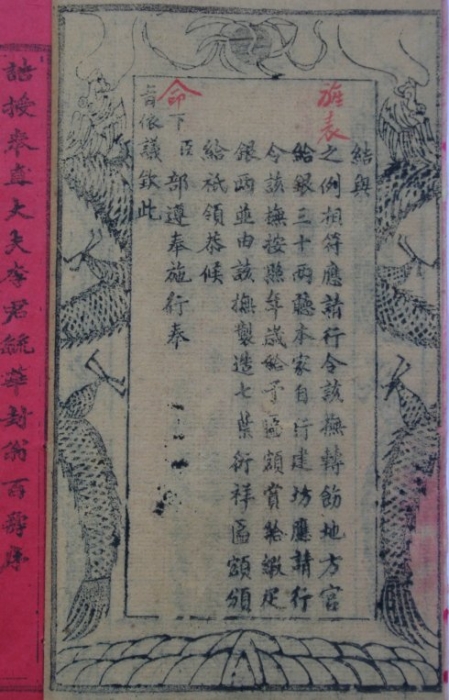 結與
旌表之例相符應請行令該撫轉飭地方官
給銀三十兩聽本家自行建坊應請行
令該撫按照年歲給予匾額賞給緞疋
銀兩並由該撫製造七葉衍祥匾額頒
給祇領恭候
命下臣部遵奉施行奉
旨依議欽此
誥授奉直大夫李君毓華封翁百齡序